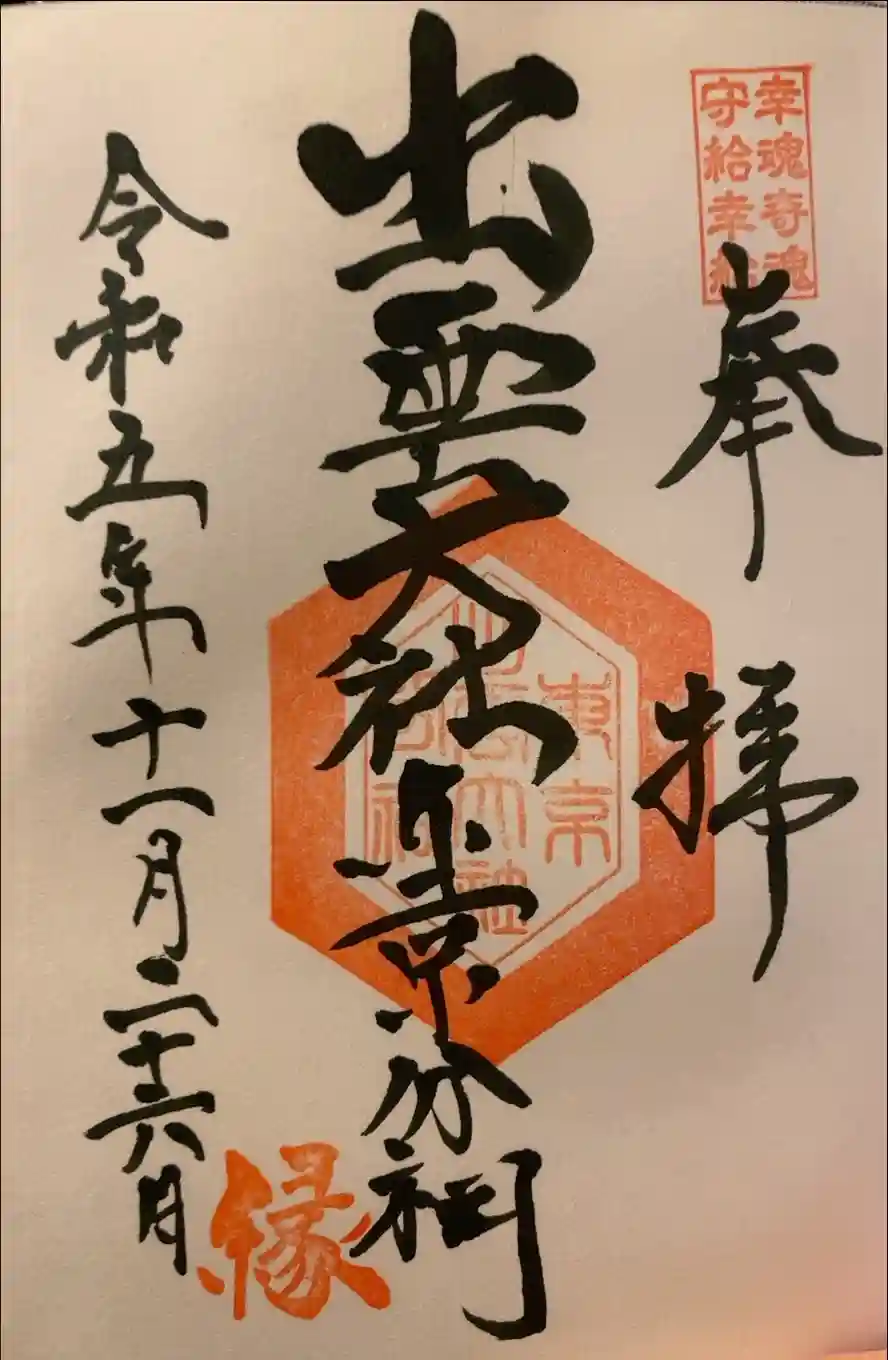 幸魂奇魂
守給幸給
奉拝
出雲大社東京分祠
東京
出雲大社
分祠
令和五年十一月二十六日
縁